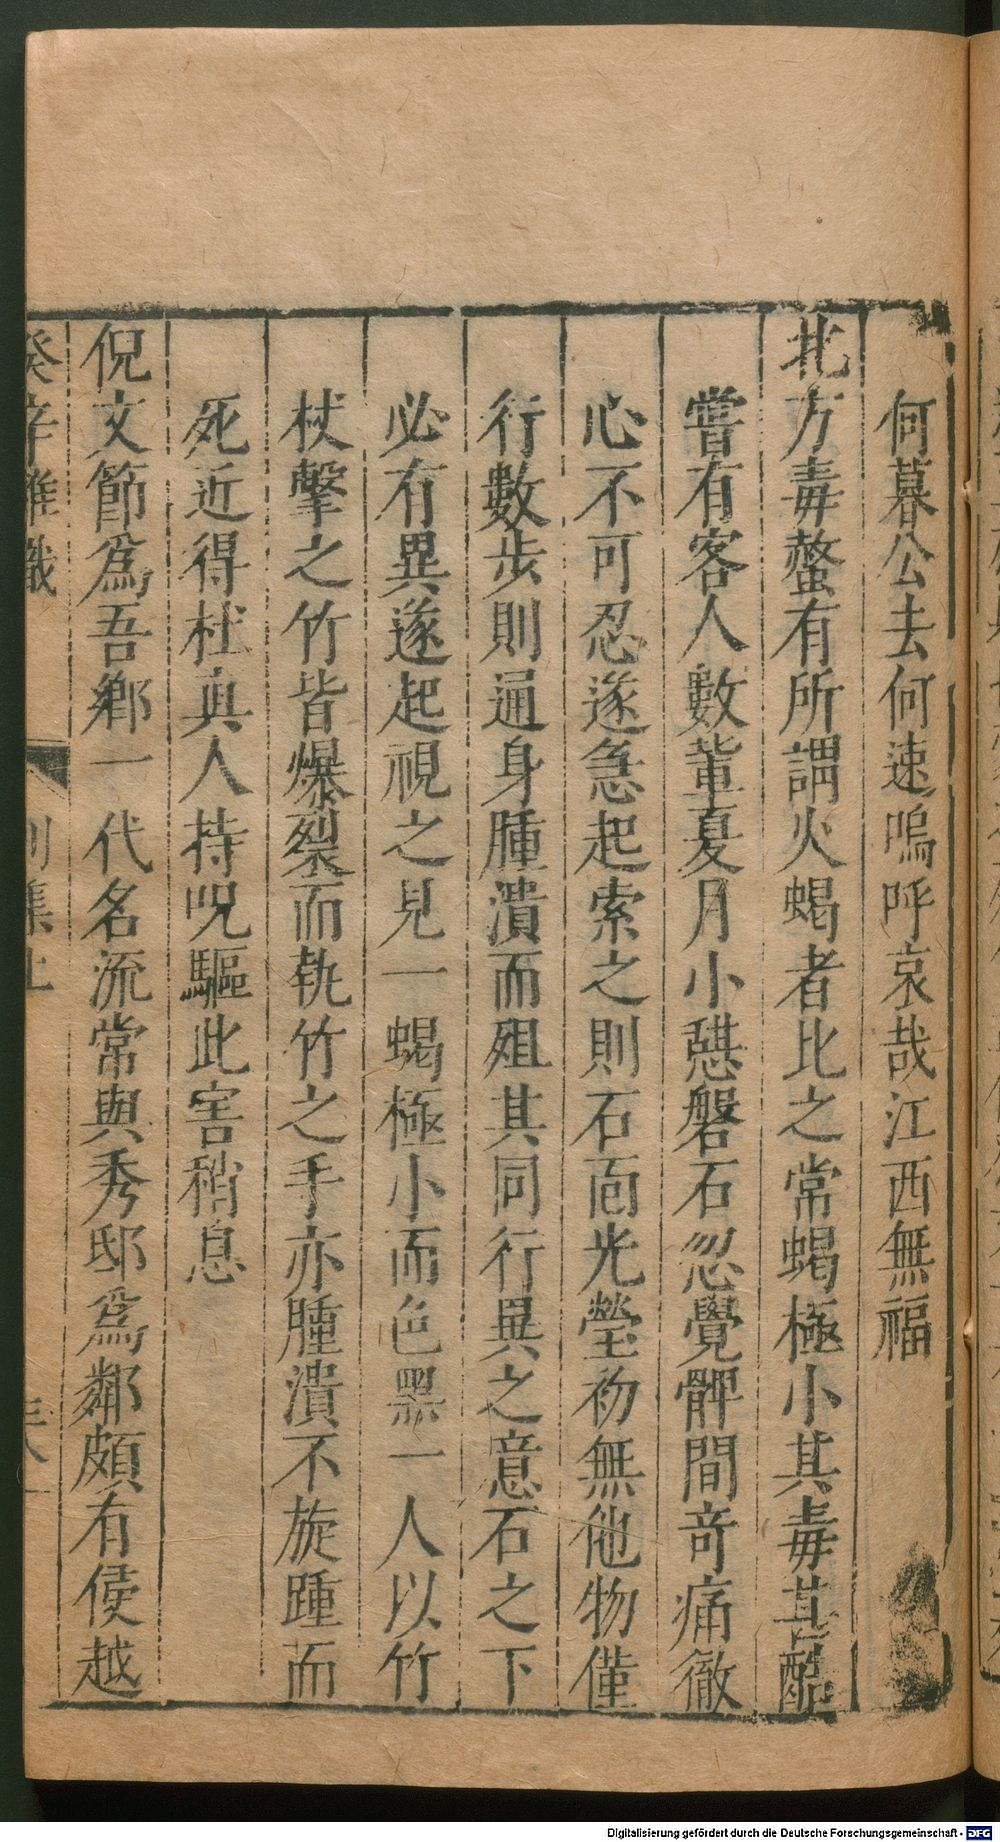 何暮公去何速嗚呼哀哉江西無福
北方毒螫有所謂火蝎者比之常蝎極小其毒甚酷
嘗有客人數軰夏月小憇磐石忽覺髀間竒痛徹
心不可忍遂急起索之則石面光瑩初無他物僅
行數步則通身腫潰而殂其同行異之意石之下
必有異遂起視之見一蝎極小而色黑一人以竹
杖擊之竹皆爆裂而執竹之手亦腫潰不旋踵而
死近得杜真人持呪驅此害稍息
倪文節爲吾鄉一代名流常與秀邸爲鄰頗有侵越
癸辛雜識
別集上
Digitalisierung gefördert durch die Deutsche Forschungsgemeinschaft - DFG